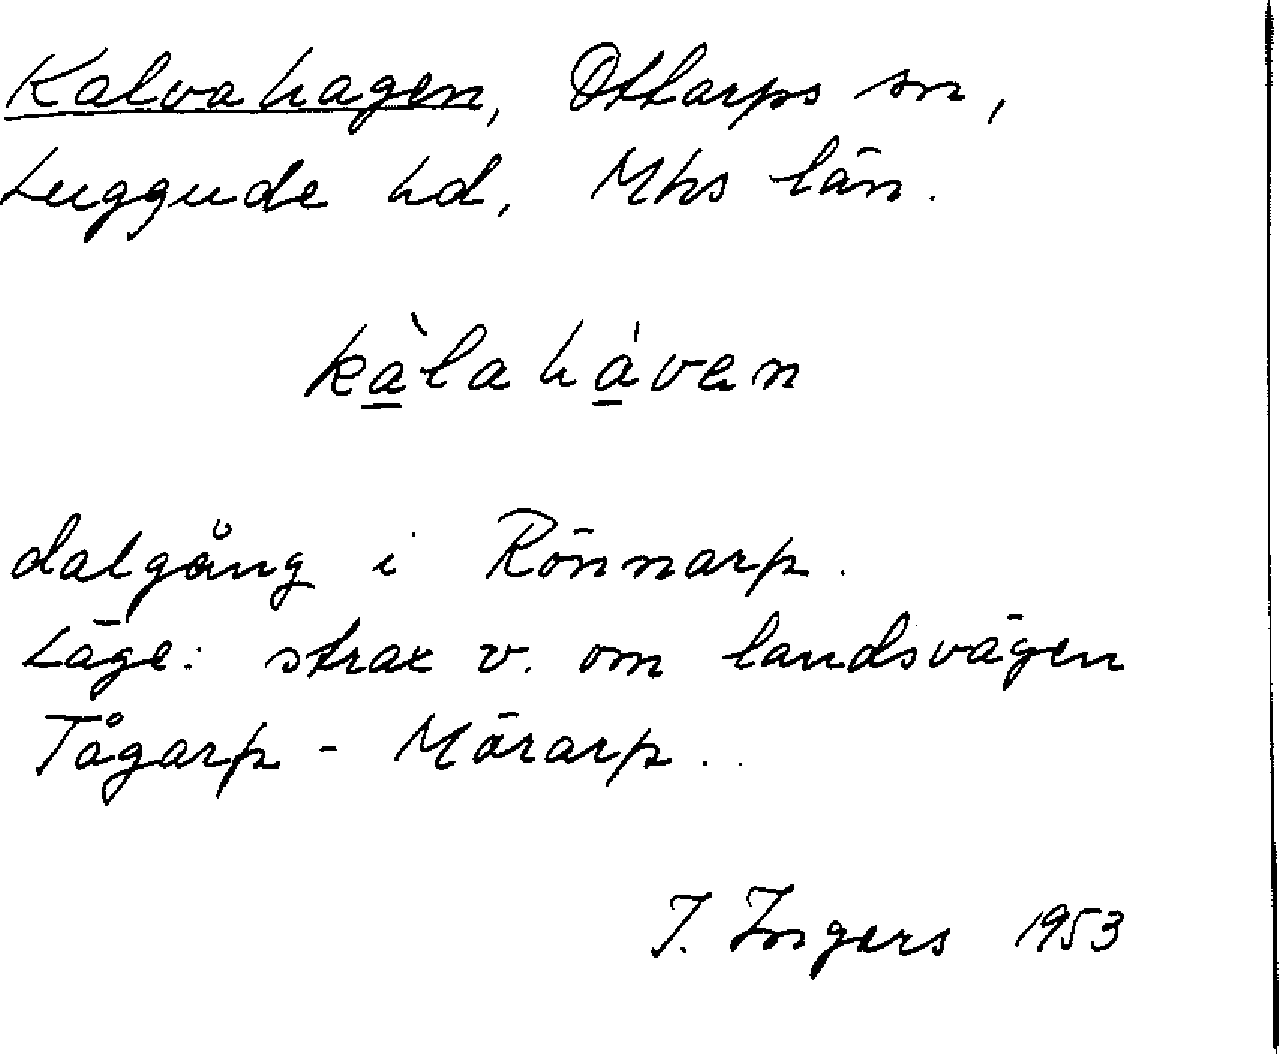 Kalvahagen, Ottarps sn,
Luggude hd, Mhs län.
kàlaháven
dalgång i Rönnarp.
Läge: strax v. om landsvägen
Tågarp - Mörarp..
I. Ingers 1953